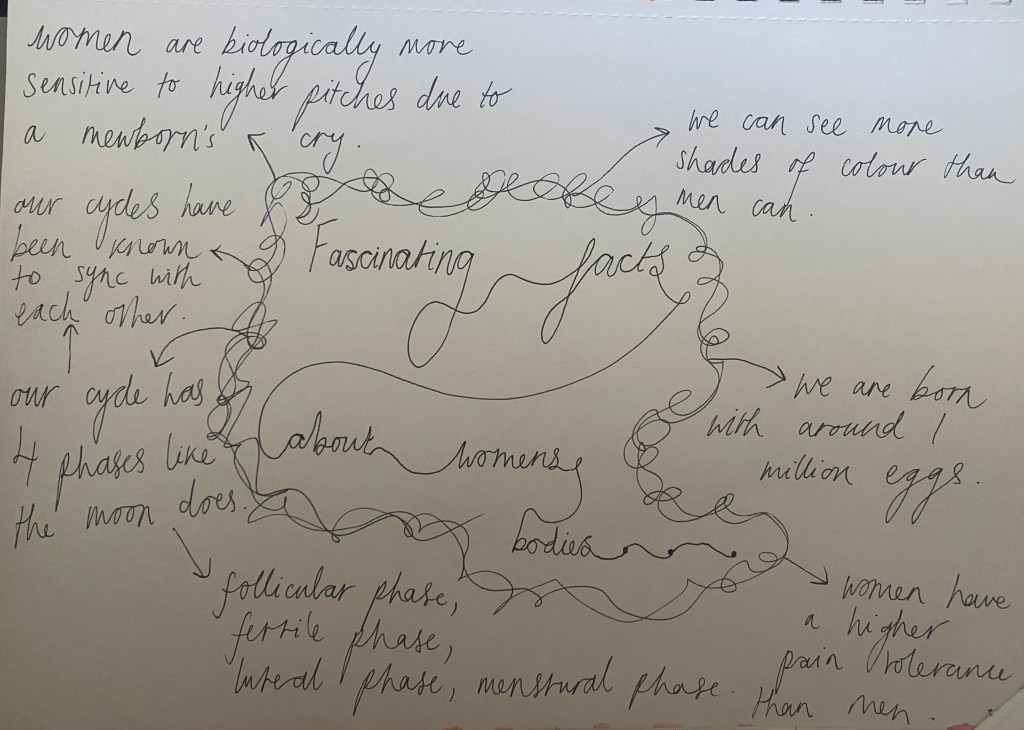 women are biologically more
sensitive to higher pitches due to
a newborn's cry.
we can see more
shades of colour than
men can.
our cycles have
been known
to sync with
each other.
Fascinating facts
our cycle has
4 phases like
the moon does.
we are born
with around 1
million eggs.
about womens
bodies
follicular phase,
fertile phase,
luteal phase, menstural phase.
women have
a higher
pain tolerance
than men.